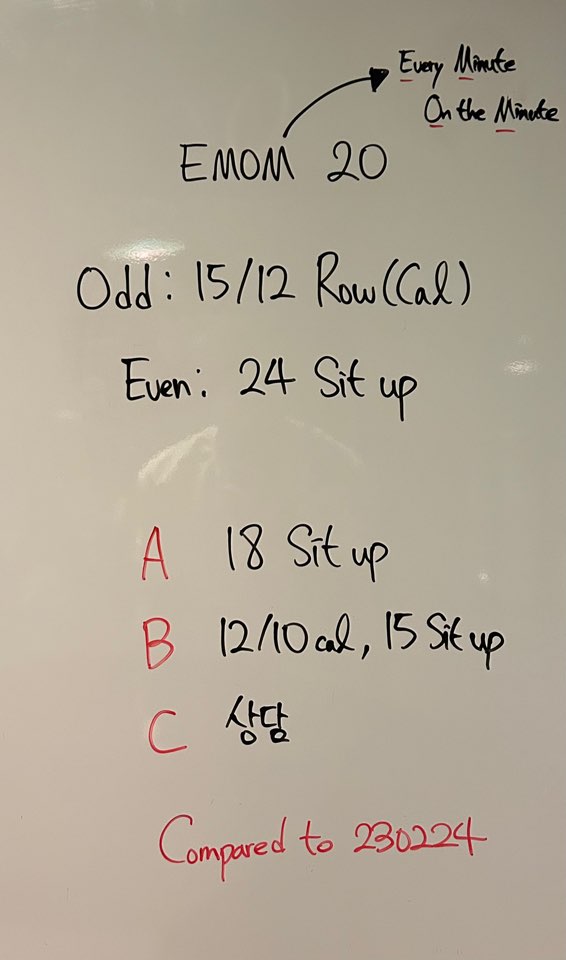 Every Minute
On the Minute
EMOM 20
Odd: 15/12 Row(Cal)
Even: 24 Sit up
A 18 Sit up
B 12/10 cal, 15 Sit up
C 상담
Compared to 230224